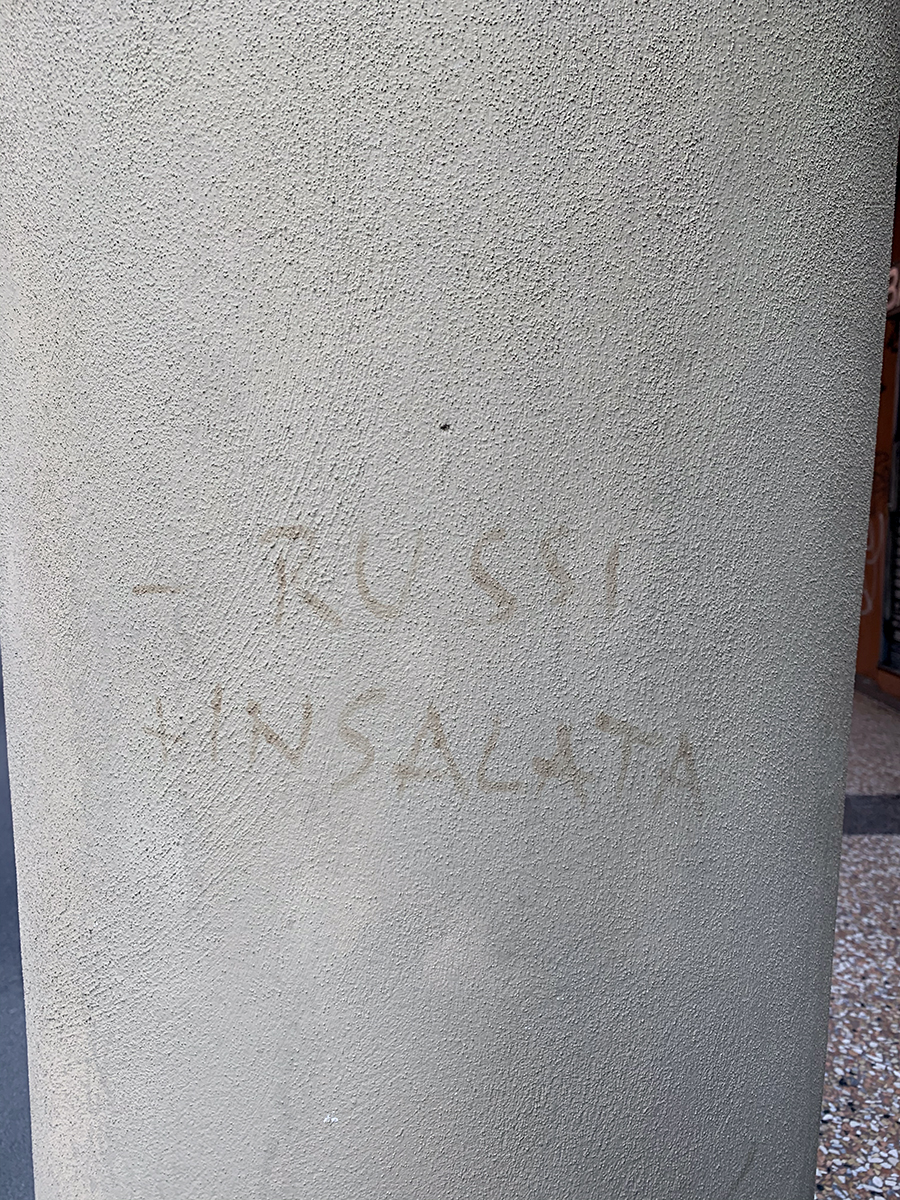 - RUSSI
+INSALATA